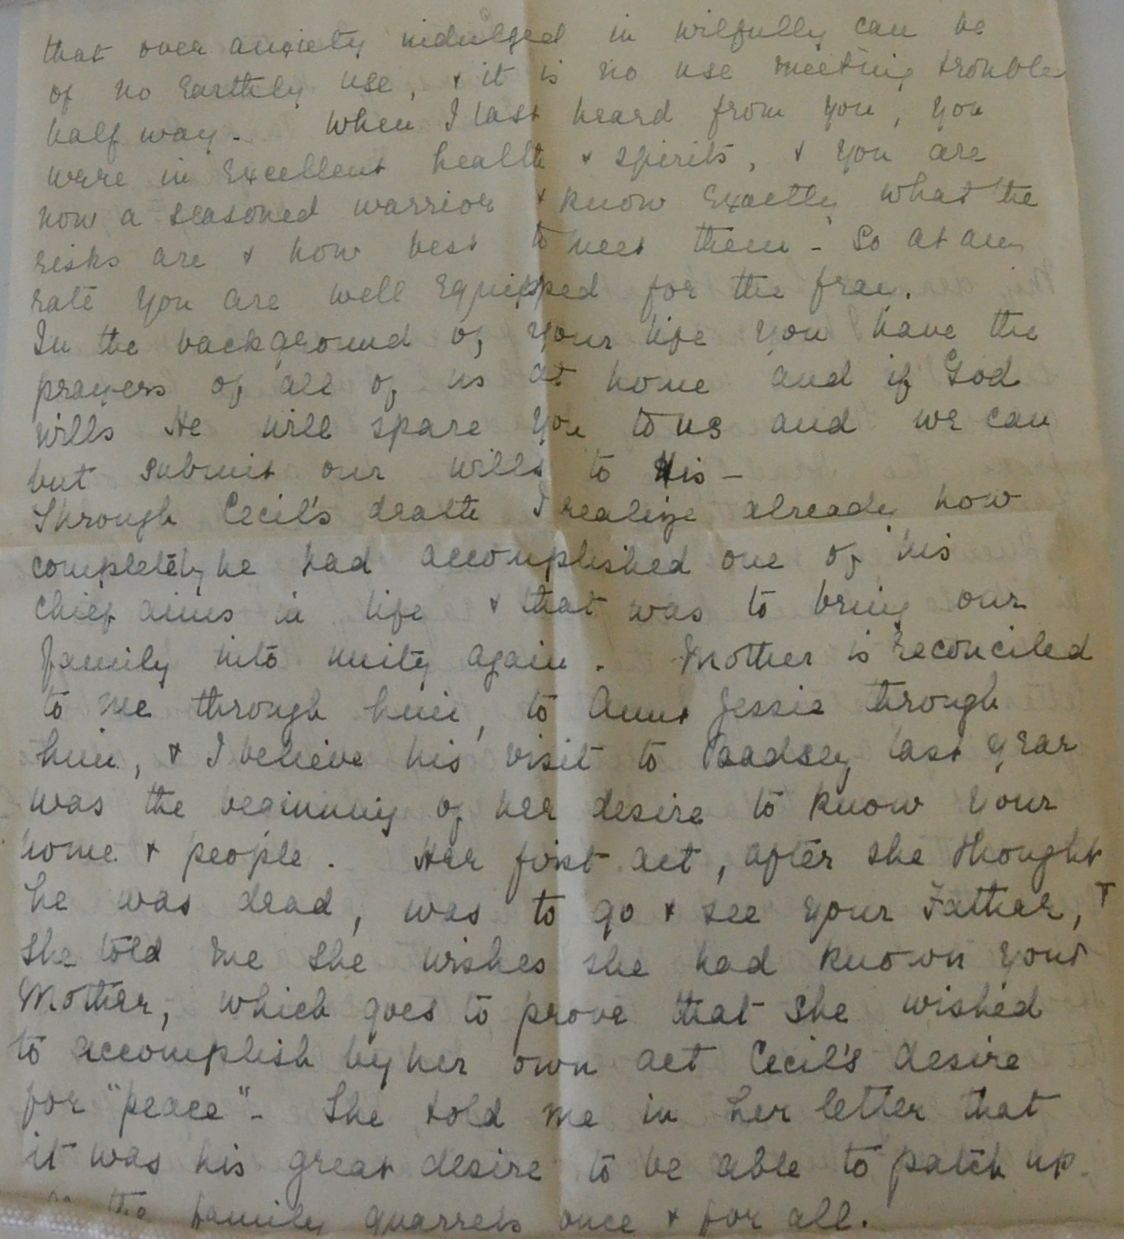 that over anxiety indulged in wilfully can be
of no Earthly use, & it is no use meeting trouble
half way. When I last heard from you, you
were in Excellent health & spirits, & you are
now a seasoned warrior & know Exactly what the
risks are & how best to meet them - So at any
rate you are well Equipped for the fray.
In the background of your life you have the
prayers of all of us at home and if God
wills He will spare you to us and we can
but submit our wills to His -
Through Cecil's death I realize already how
completely he had accomplished one of his
chief aims in life & that was to bring our
family into unity again. Mother is reconciled
to me through him, to Aunt Jessie through
him, & I believe his visit to Badsey last year
was the beginning of her desire to know your
home & people. Her first act, after she thought
he was dead, was to go & see your Father, &
She told me she wishes she had known your
Mother, which goes to prove that She wished
to accomplish by her own act Cecil's desire
for "peace" - She told me in her letter that
it was his great desire to be able to patch up
the family quarrels once & for all.